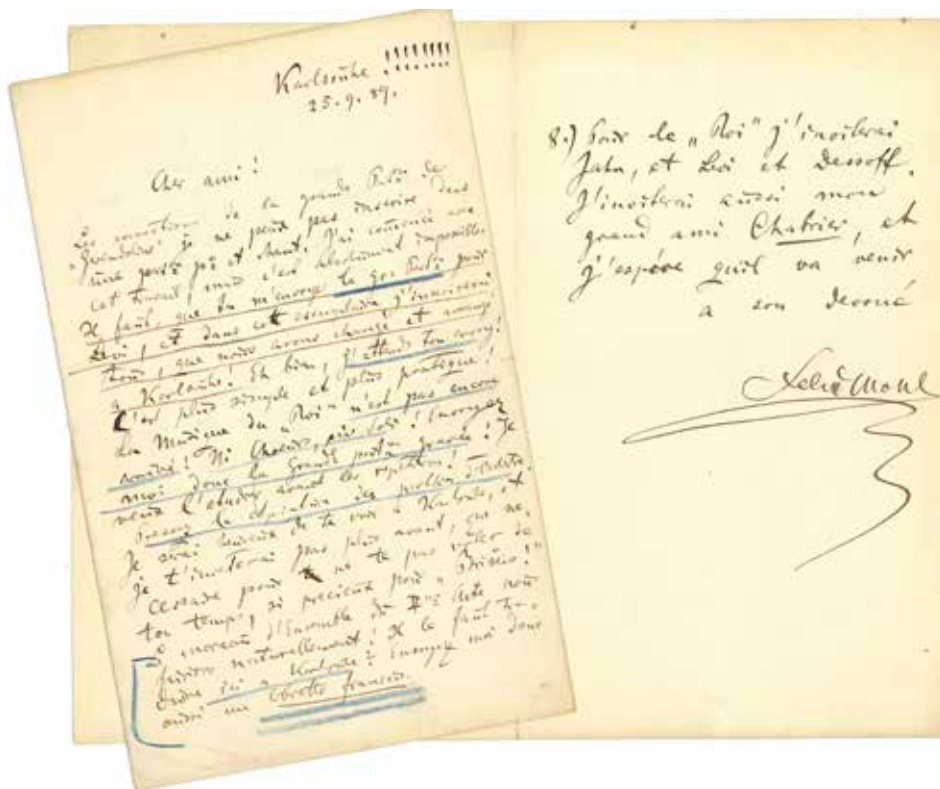 Karlsruhe !!!!!!!!
25.9.89.
Cher ami!
Les corrections de la grande Partit. der
"Gwendoline" je ne peux pas inscrire dans
une partit p. et chant. J'ai comencé avec
cet travail, mais c'est absolument impossible.
Il faut, que tu m'envoye la gr. Partit. pour
Levi, et dans cet exemplaire j'inscrirai
tous, que nous avons changé et arrangé
a Karlsruhe! Eh bien, j'attends ton envoy!
C'est plus simple et plus pratique!
La Musique du "Roi" n'est pas encore
arrivée! Ni Choeurs, ni Soli! Envoyez
moi donc la grande partit. gravée! Je
veux l'etudier avant les repetitions!
Je serai heureux de te voir a Karlsruhe, et
je t'inviterai pas plus avant, que ne-
cessaire pour ne te pas voler de
ton temps, si precieux pour "Briseis!"
morceau d'Ensemble du IIme Acte nous
ferons naturellement! Il le faut tra-
duire ici a Karlsruhe! Envoyez moi donc
aussi un libretto francais.
8.) Pour le "Roi" j'inviterai
Jahn, et Levi et Dessoff.
J'inviterai aussi mon
grand ami Chabrier, et
j'espére quil va venir
a son devoué
Felix Mottl